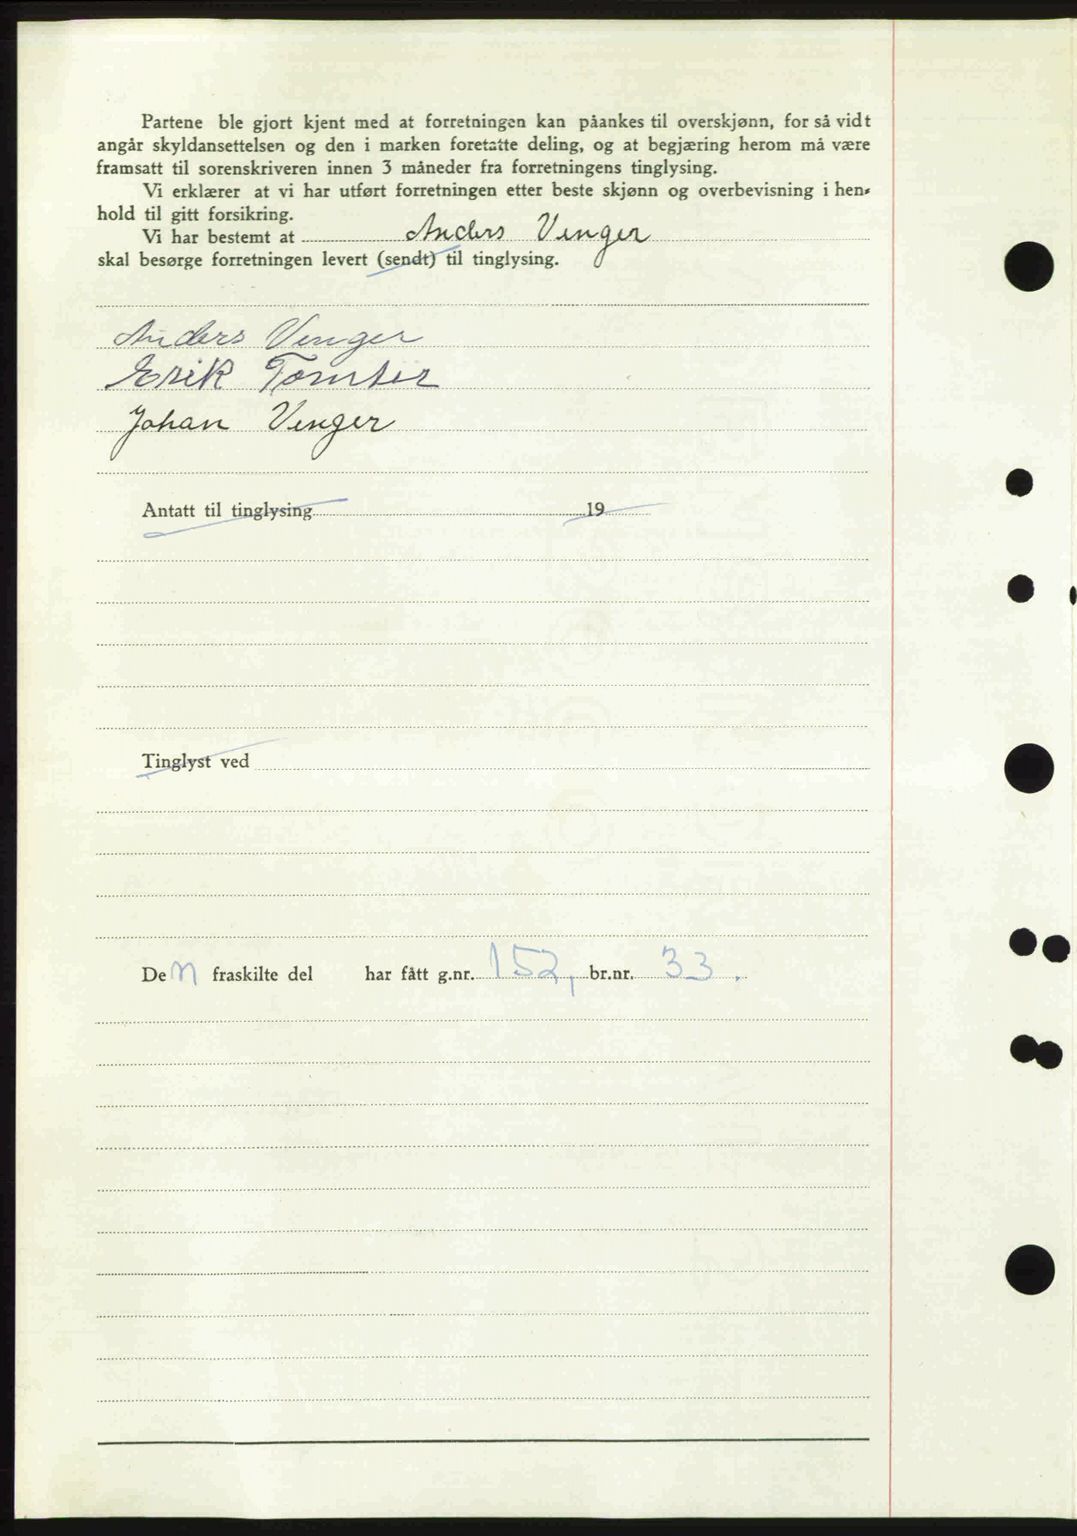 Partene ble gjort kjent med at forretningen kan påankes til overskjønn, for så vidt
angår skyldansettelsen og den i marken foretatte deling, og at begjæring herom må være
framsatt til sorenskriveren innen 3 måneder fra forretningens tinglysing.
Vi erklærer at vi har utført forretningen etter beste skjønn og overbevisning i hen-
hold til gitt forsikring.
Vi har bestemt at Anders Venger
skal besørge forretningen levert (sendt) til tinglysing.
Anders Venger
Erik Tomter
Johan Venger
Antatt til tinglysing 19
Tinglyst ved
Den fraskilte del har fått g.nr. 152, br.nr. 33.